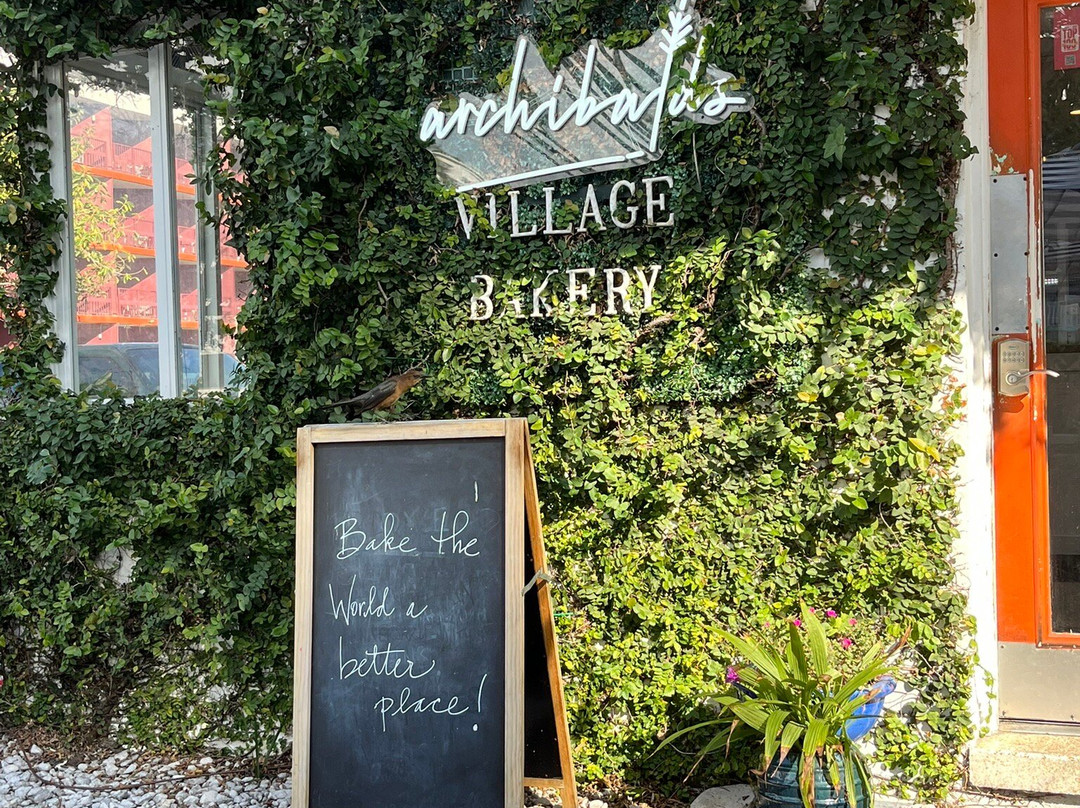 archibald's
VILLAGE
BAKERY
Bake the
World a
better
place!